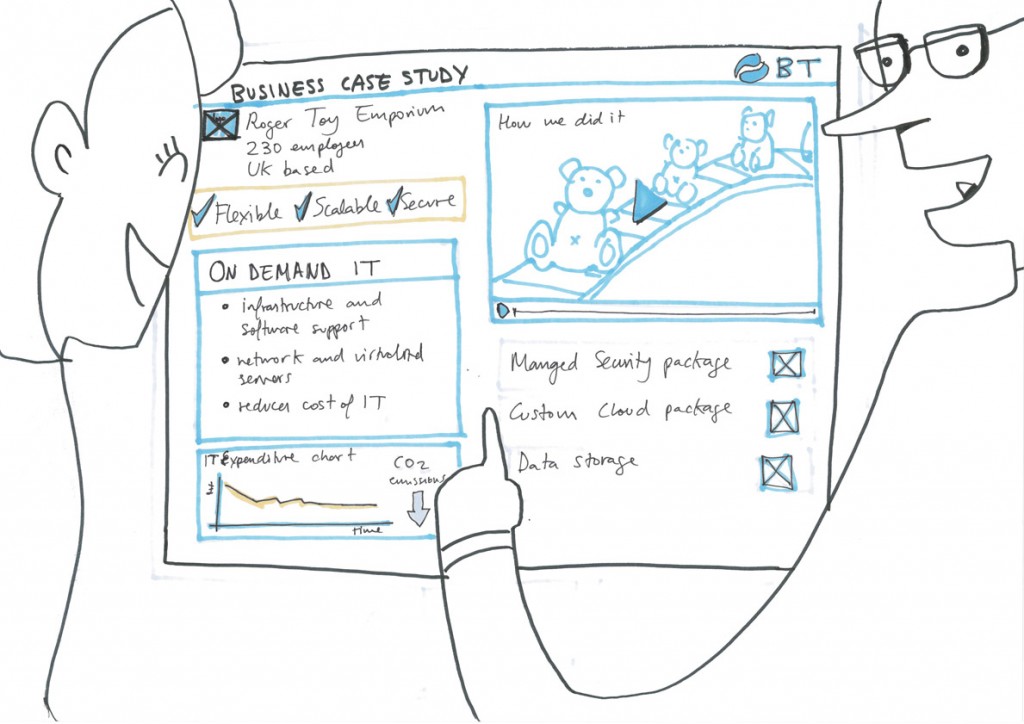 BUSINESS CASE STUDY
BT
Roger Toy Emporium
230 employees
UK based
Flexible Scalable Secure
ON DEMAND IT
• infrastructure and
software support
• network and virtualised
servers
• reduces cost of IT
IT Expenditure chart
time
CO2
emissions
How we did it
Manged Security package
Custom Cloud package
Data storage